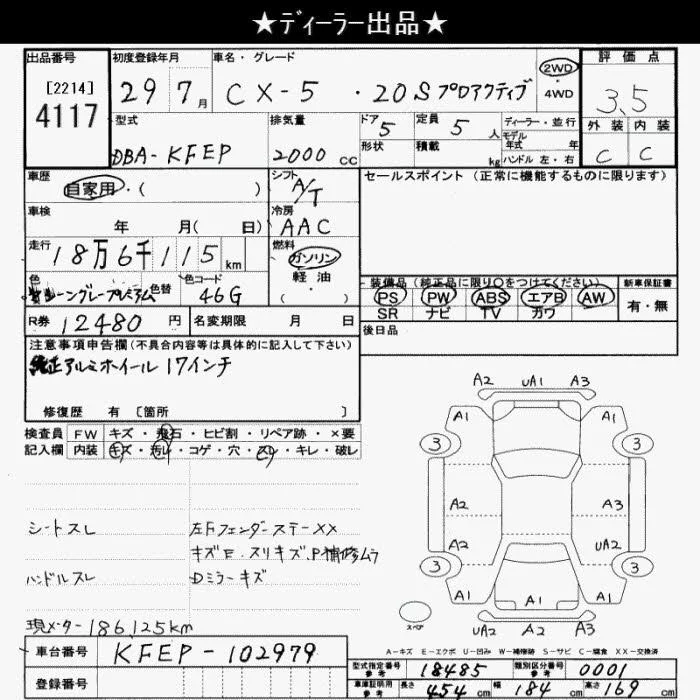 ★ディーラー出品★
出品番号 初度登録年月 車名・グレード 2WD・4WD 評価点
[2214] 4117 29 7月 CX-5 ・20S プロアクティブ 3.5
型式 排気量 ドア 5 定員 5人 ディーラー・並行 外装 内装
モデル年式 年
DBA-KFEP 2000CC 形状 積載 kg ハンドル 左・右 C C
車歴 シフト セールスポイント(正常に機能するものに限ります)
自家用・( ) A/T
車検 冷房
年 月( 日) AAC
走行 燃料
18万6千115km ガソリン
軽・油
( )
色 色替 色コード 装備品(純正品に限り○をつけてください) 新車保証書
マシーングレープレミアム 46G PS PW ABS エアB AW 有・無
SR ナビ TV カワ
R券 12480円 名変期限 月 日 後日品
注意事項申告欄(不具合内容等は具体的に記入して下さい)
純正アルミホイール 17インチ
修復歴 有 [箇所 ]
検査員 FW キズ・飛石・ヒビ割・リペア跡・×要
記入欄 内装 キズ・汚レ・コゲ・穴・スレ・キレ・破レ
シートスレ 左Fフェンダーステー XX
キズE.スリキズ.P補修ムラ
ハンドルスレ Dミラーキズ
現メーター 186,125km
A2 UA1 A3
A1 A1
3 3
A2 A3
A2 UA2
3 3
A1 A1 A1
スペア UA2 A2 A3
A-キズ E-エクボ U-凹み W-補修跡 S-サビ C-腐食 XX-交換済
車台番号 KFEP-102979
登録番号
型式指定番号 参考 18485 類別区分番号 参考 0001
車庫証明用 参考 長さ 454cm 幅 184cm 高さ 169cm